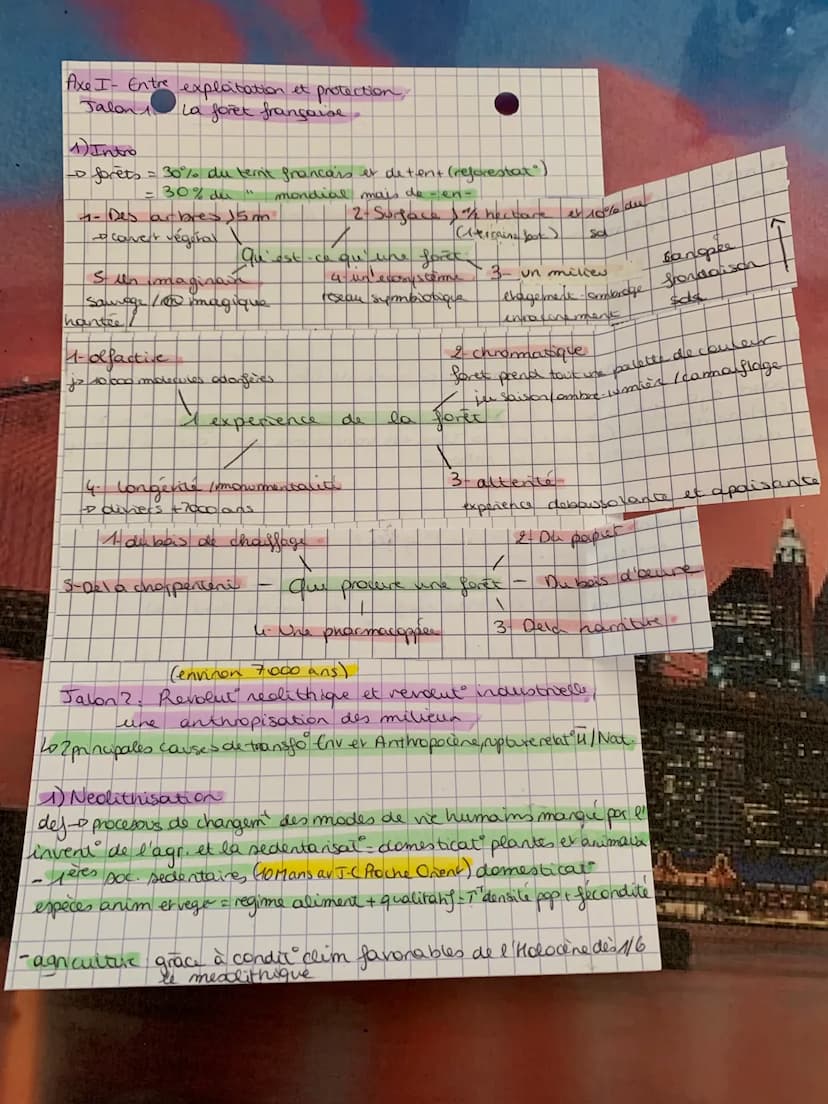 Axe I - Entre exploitation et protection
Jalon 1: La forêt française.
1) Intro
→ forêts = 30% du territ français et de + en + (reforestat°)
= 30% du " mondial mais de - en -
1- Des arbres > 5m
→ couvert végétal
2- Surface > ½ hectare et 10% du sol
(1 terrain foot)
Qu'est-ce qu'une forêt
5- un imaginaire
sauvage / magique
hantée /
4- un ecosystème
réseau symbiotique
3- un milieu
étagement - ombrage
enracinement
canopée
frondaison
sols
1- olfactive
→ 10 000 molécules odorifées
2- chromatique
forêt prend tout une palette de couleur
jeu saison/ombre-lumière / camouflage
1 experience de la forêt
4- Longévité / monumentalité
→ oliviers +7000 ans
3- alterité
expérience deboussolante et apaisante
1- du bois de chauffage
2- Du papier
5- De la charpenterie - Que procure une forêt - Du bois d'œuvre
4- Une pharmacopée
3- De la
(environ 7000 ans)
Jalon 2: Revolut° néolithique et revolut° industrielle,
une anthropisation des milieux
↳ 2 principales causes de transfo° Env et Anthropocène, rupture relat° H/Nat
1) Neolithisation
def → processus de changemt des modes de vie humains marqué par l'
invent° de l'agr. et la sedentarisat° = domesticat° plantes et animaux
- 1ères soc. sedentaires (10M ans av J-C Proche Orient) domesticat°
espèces anim et vege = régime aliment + qualitatif = ↑ densité pop + fécondité
- agriculture grâce à condit° clim favorables de l'Holocène dès 1/6
le mesolithique